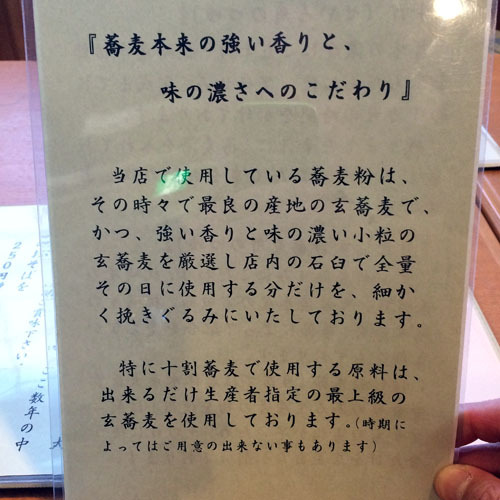 『蕎麦本来の強い香りと、
味の濃さへのこだわり』
当店で使用している蕎麦粉は、
その時々で最良の産地の玄蕎麦で、
かつ、強い香りと味の濃い小粒の
玄蕎麦を厳選し店内の石臼で全量
その日に使用する分だけを、細か
く挽きぐるみにいたしております。
特に十割蕎麦で使用する原料は、
出来るだけ生産者指定の最上級の
玄蕎麦を使用しております。(時期に
よってはご用意の出来ない事もあります)
数年の中